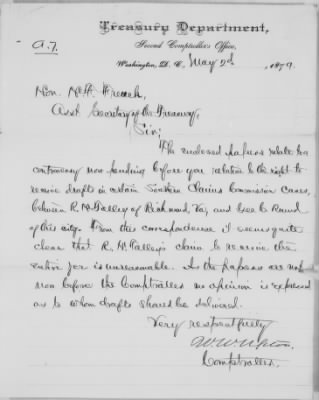 Treasury Department,
a.7.
Second Comptroller's Office,
Washington, D. C., May 2d, 1879.
Hon. H. F. French,
Asst Secretary of the Treasury,
Sir;
The enclosed papers relate to a
controversy now pending before you relative to the right to
receive drafts in certain Southern Claims Commission cases,
between R. H. Talley of Richmond, Va, and
of this city. From the correspondence it seems quite
clear that R. H. Talley's claim to receive the
entire fee is unreasonable. As the papers are not
now before the Comptroller no opinion is expressed
as to whom drafts should be delivered.
Very respectfully
W. W. Upton,
Comptroller.